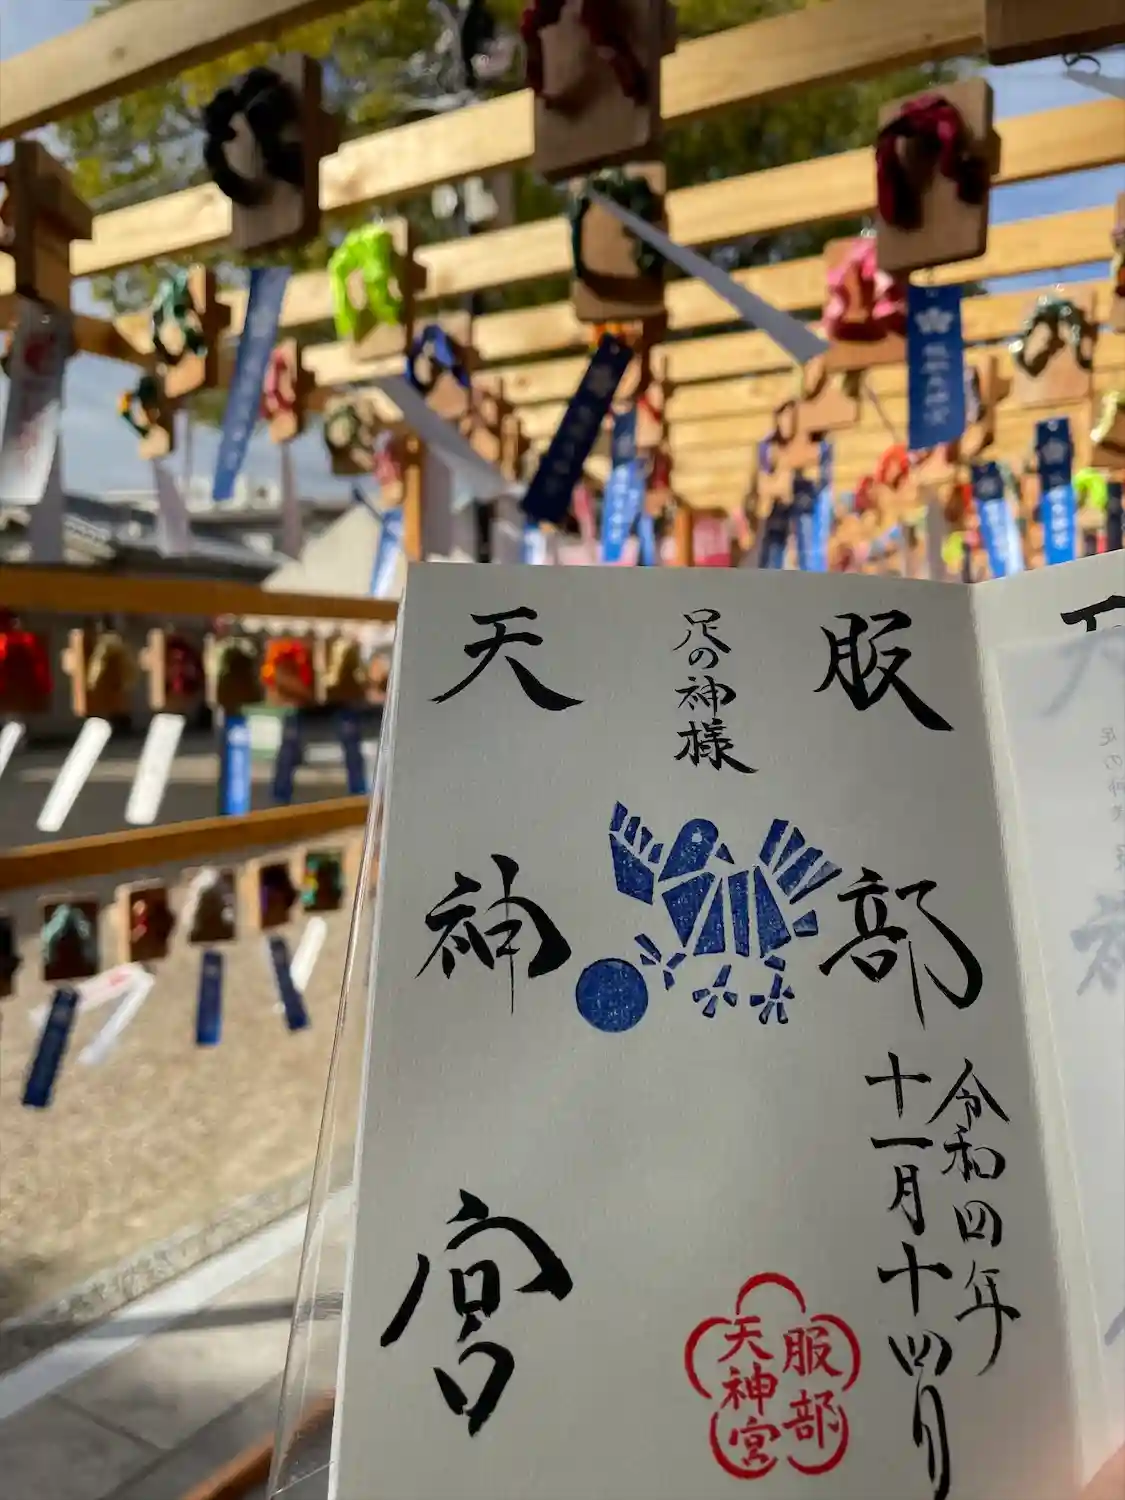 服部
足の神様
天神宮
令和四年
十一月十四日
服部
天神宮
服部天神宮